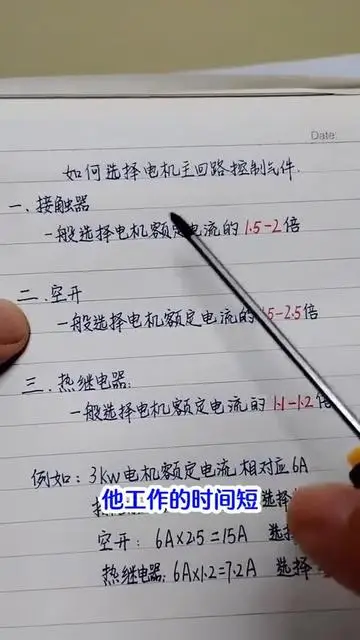 Date:
如何选择电机主回路控制元件.
一、接触器
一般选择电机额定电流的1.5-2倍
二、空开
一般选择电机额定电流的1.5-2.5倍
三、热继电器:
一般选择电机额定电流的1.1-1.2倍
例如:3Kw电机额定电流相对应6A
他工作的时间短
空开: 6A×2.5=15A 选择
热继电器: 6A×1.2=7.2A 选择